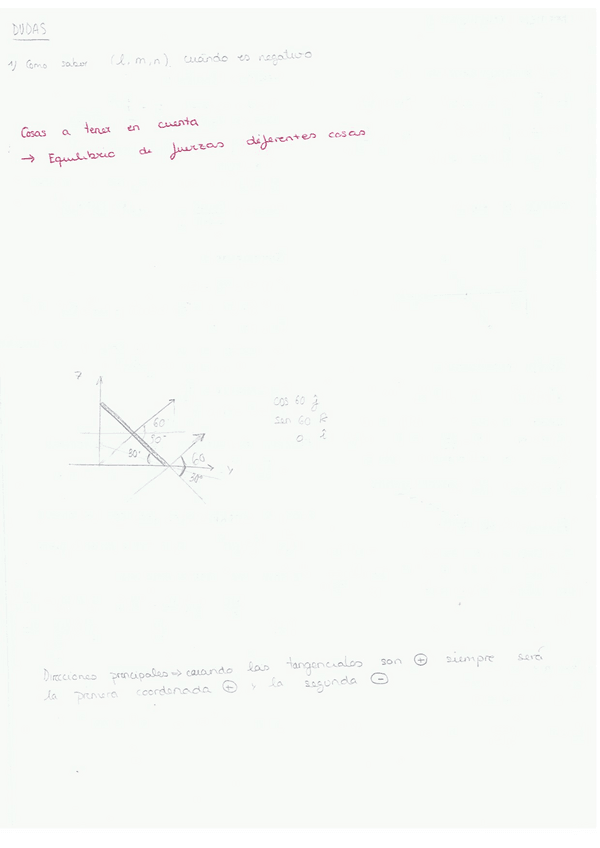 DUDAS
1) Como saber (l, m, n) cuándo es negativo
Cosas a tener en cuenta
→ Equilibrio de fuerzas diferentes cosas
z
60
30°
30°
60
30°
y
cos 60 ĵ
sen 60 k̂
0 î
Direcciones principales ⇒ cuando las tangenciales son ⊕ siempre será
la primera coordenada ⊕ y la segunda ⊖